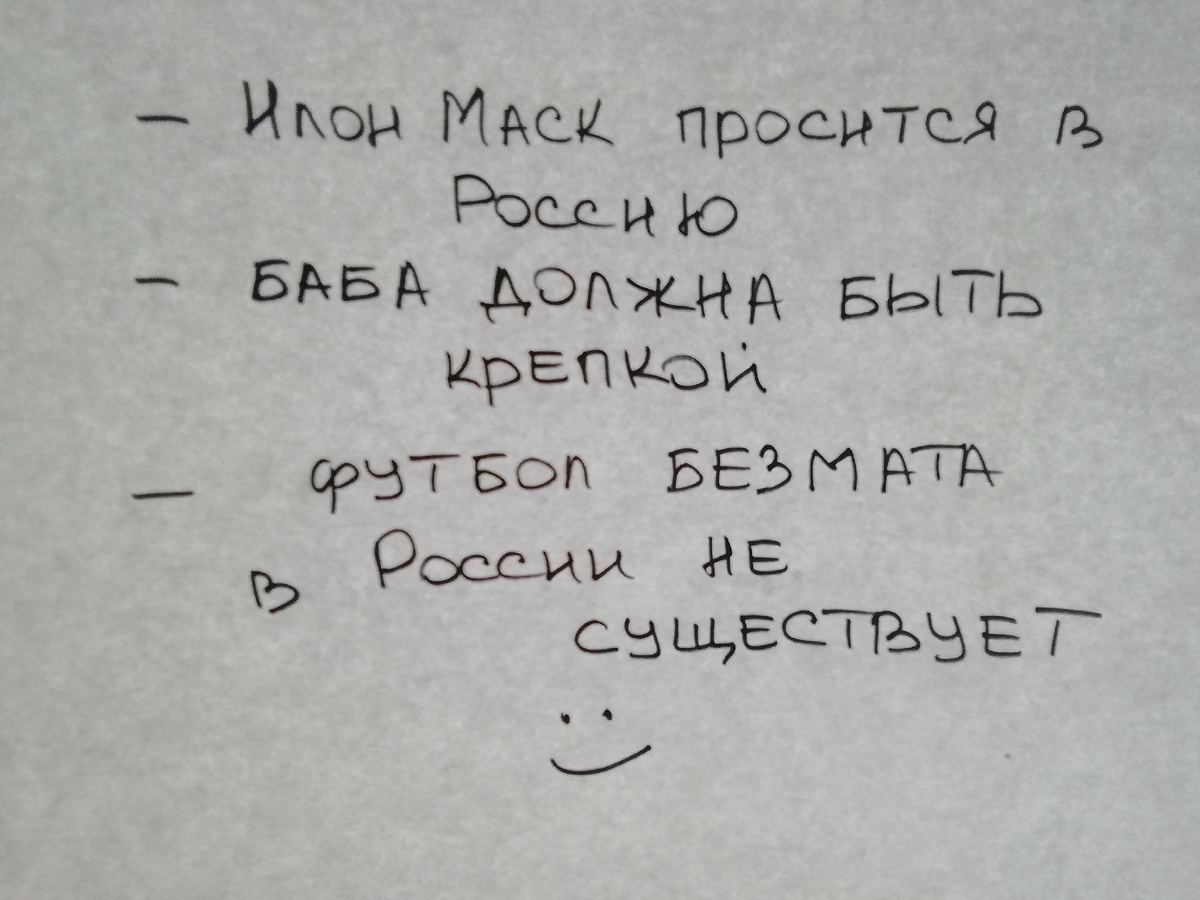 - Илон Маск просится в
России
- БАБА ДОЛЖНА БЫТЬ
КРЕПКОЙ
- ФУТБОЛ БЕЗ МАТА
в России НЕ
СУЩЕСТВУЕТ